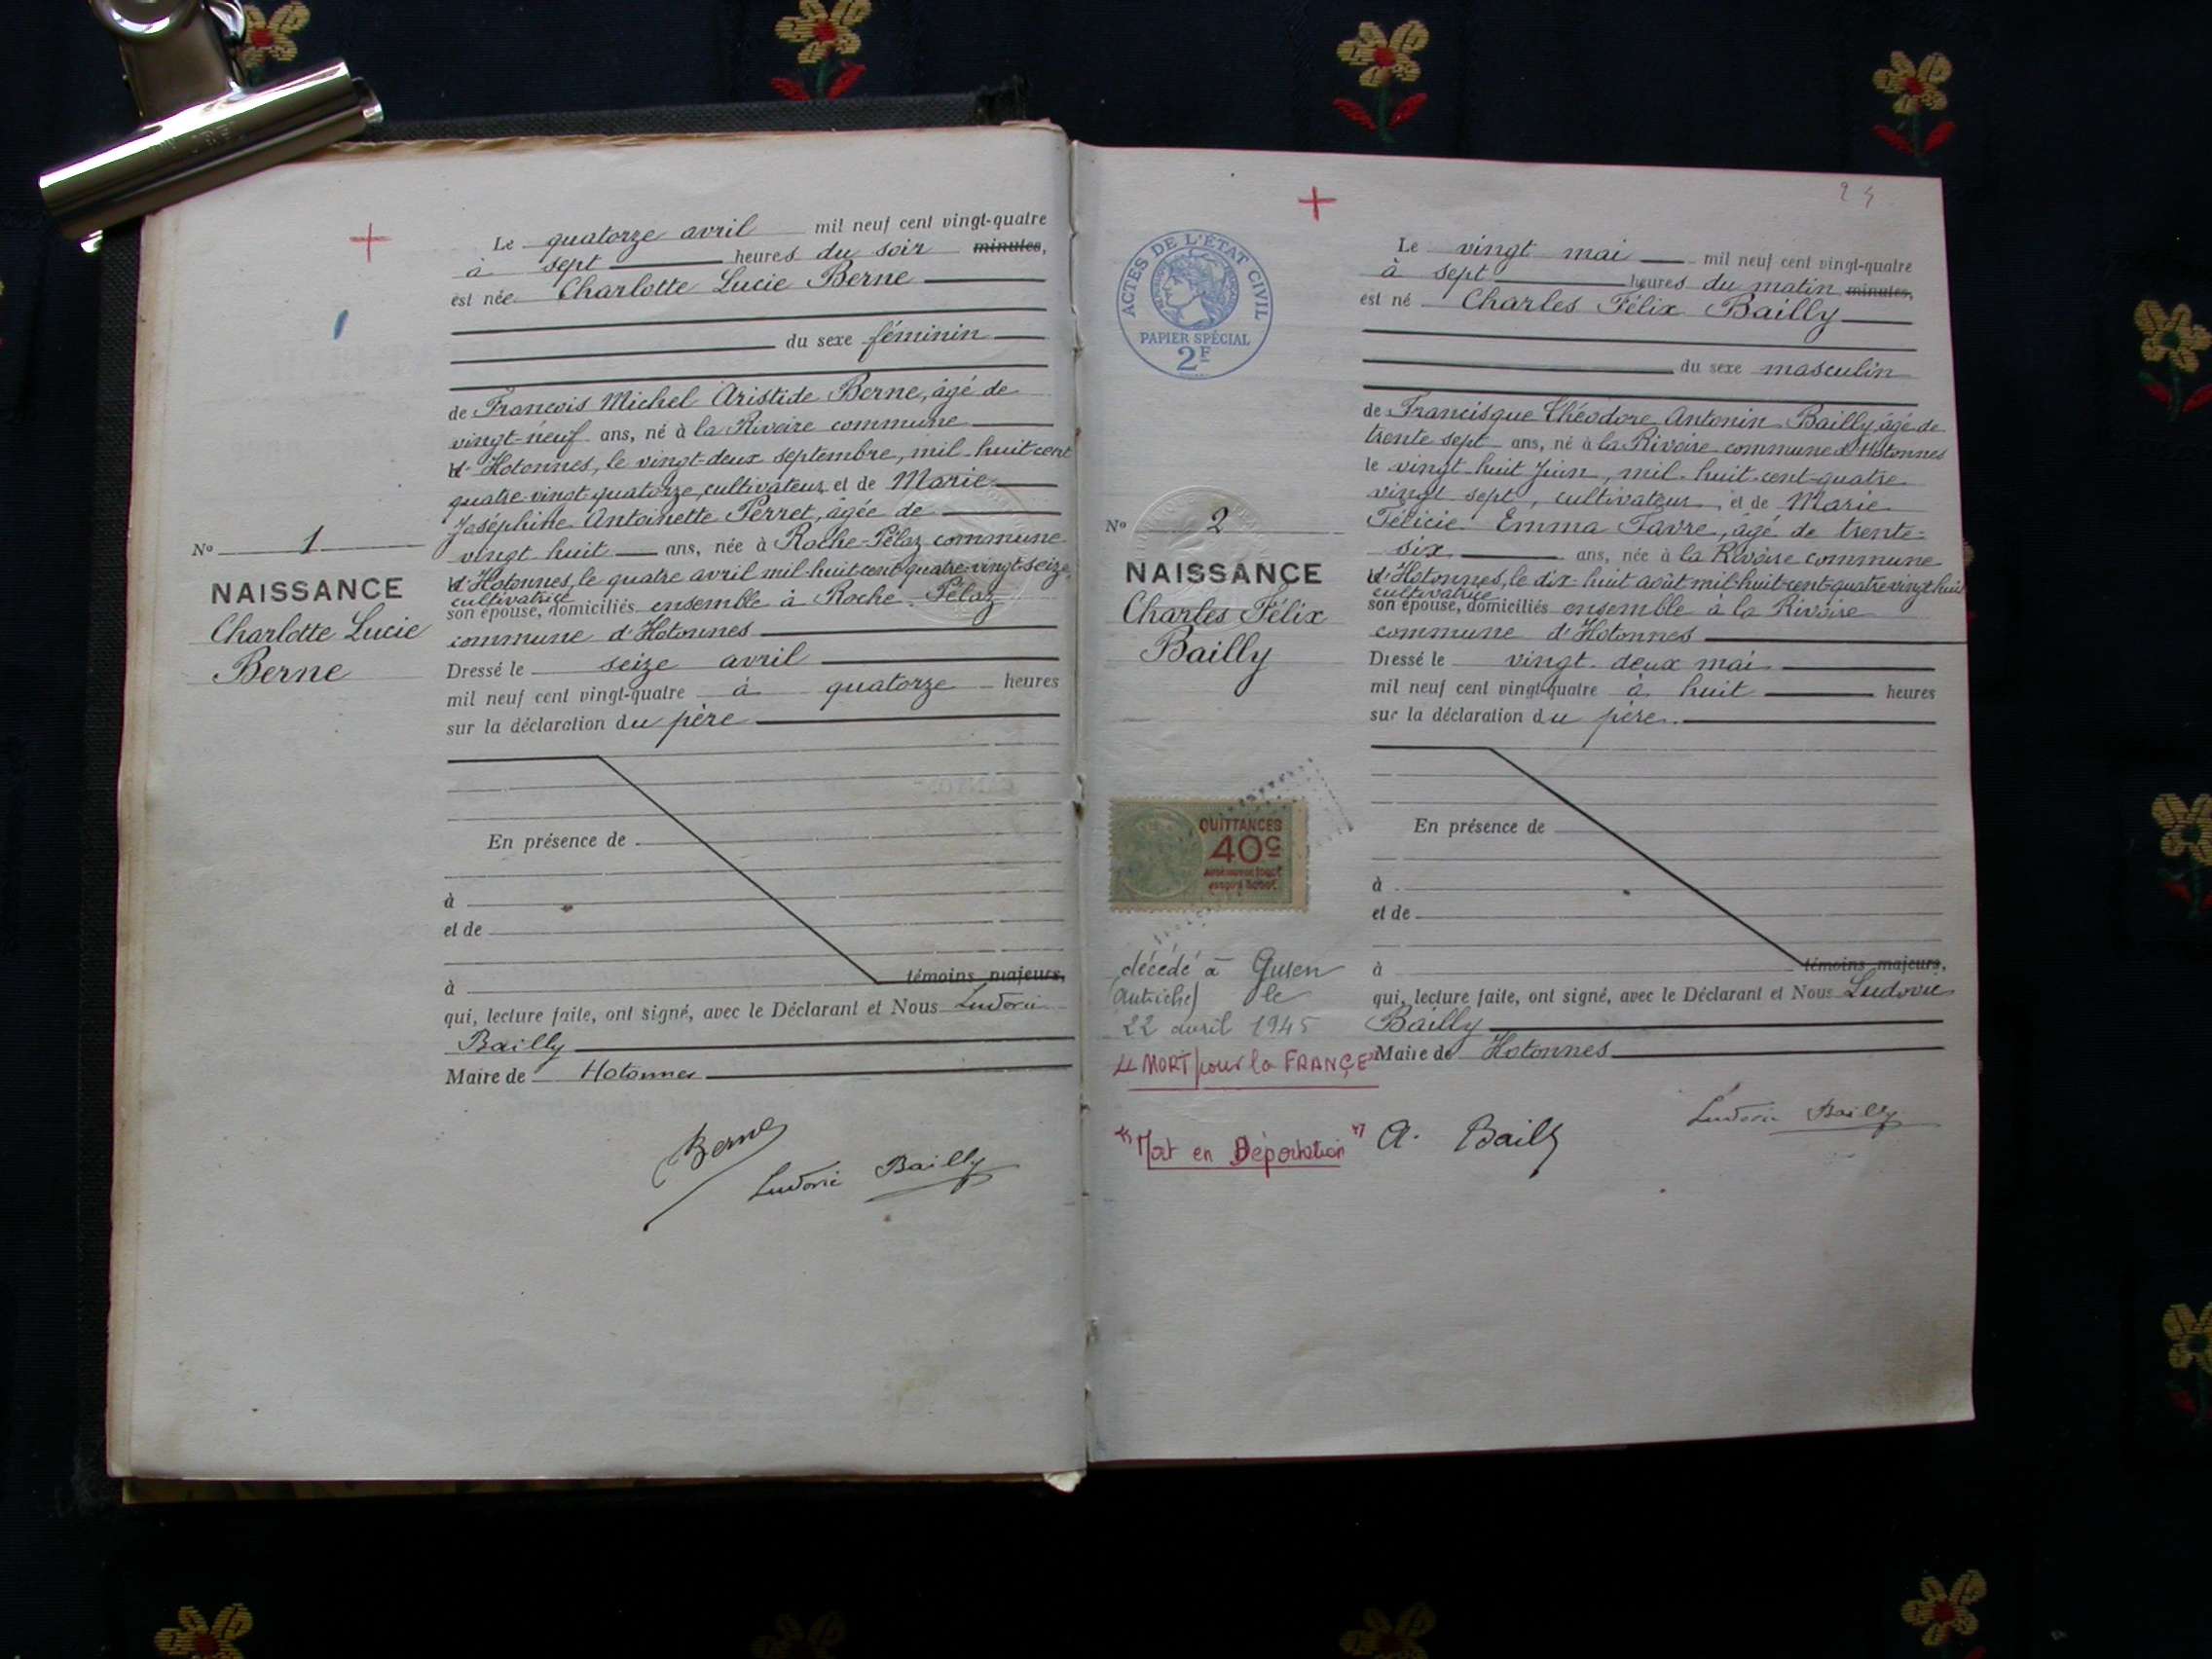 Le quatorze avril mil neuf cent vingt-quatre
à sept heures du soir minutes,
est née Charlotte Lucie Berne
du sexe féminin
de François Michel Aristide Berne, âgé de
vingt-neuf ans, né à la Rivoire commune
d'Hotonnes, le vingt-deux septembre, mil-huit-cent
quatre-vingt-quatorze, cultivateur et de Marie
Joséphine Antoinette Perret, âgée de
vingt huit ans, née à Roche-Pélaz commune
d'Hotonnes, le quatre avril mil-huit-cent-quatre-vingt-seize,
cultivatrice
son épouse, domiciliés ensemble à Roche-Pélaz
commune d'Hotonnes
Dressé le seize avril
mil neuf cent vingt-quatre à quatorze heures
sur la déclaration du père
En présence de
à
et de
à témoins majeurs,
qui, lecture faite, ont signé, avec le Déclarant et Nous Ludovic
Bailly
Maire de Hotonnes
Berne
Ludovic Bailly
No 1
NAISSANCE
Charlotte Lucie
Berne
24
ACTES DE L'ÉTAT CIVIL
PAPIER SPÉCIAL
2F
No 2
NAISSANCE
Charles Félix
Bailly
QUITTANCES
40c
décédé à Gusen
(Autriche) le
22 avril 1945
"MORT pour la FRANCE"
"Mort en Déportation"
Le vingt mai mil neuf cent vingt-quatre
à sept heures du matin minutes,
est né Charles Félix Bailly
du sexe masculin
de Francisque Théodore Antonin Bailly, âgé de
trente sept ans, né à la Rivoire commune d'Hotonnes
le vingt-huit Juin, mil-huit-cent-quatre
vingt sept, cultivateur, et de Marie
Félicie Emma Favre, âgé de trente-
six ans, née à la Rivoire commune
d'Hotonnes, le dix-huit août mil-huit-cent-quatre-vingt-huit
cultivatrice
son épouse, domiciliés ensemble à la Rivoire
commune d'Hotonnes
Dressé le vingt-deux mai
mil neuf cent vingt-quatre à huit heures
sur la déclaration du père.
En présence de
à
et de
à témoins majeurs,
qui, lecture faite, ont signé, avec le Déclarant et Nous Ludovic
Bailly
Maire de Hotonnes
A. Bailly
Ludovic Bailly